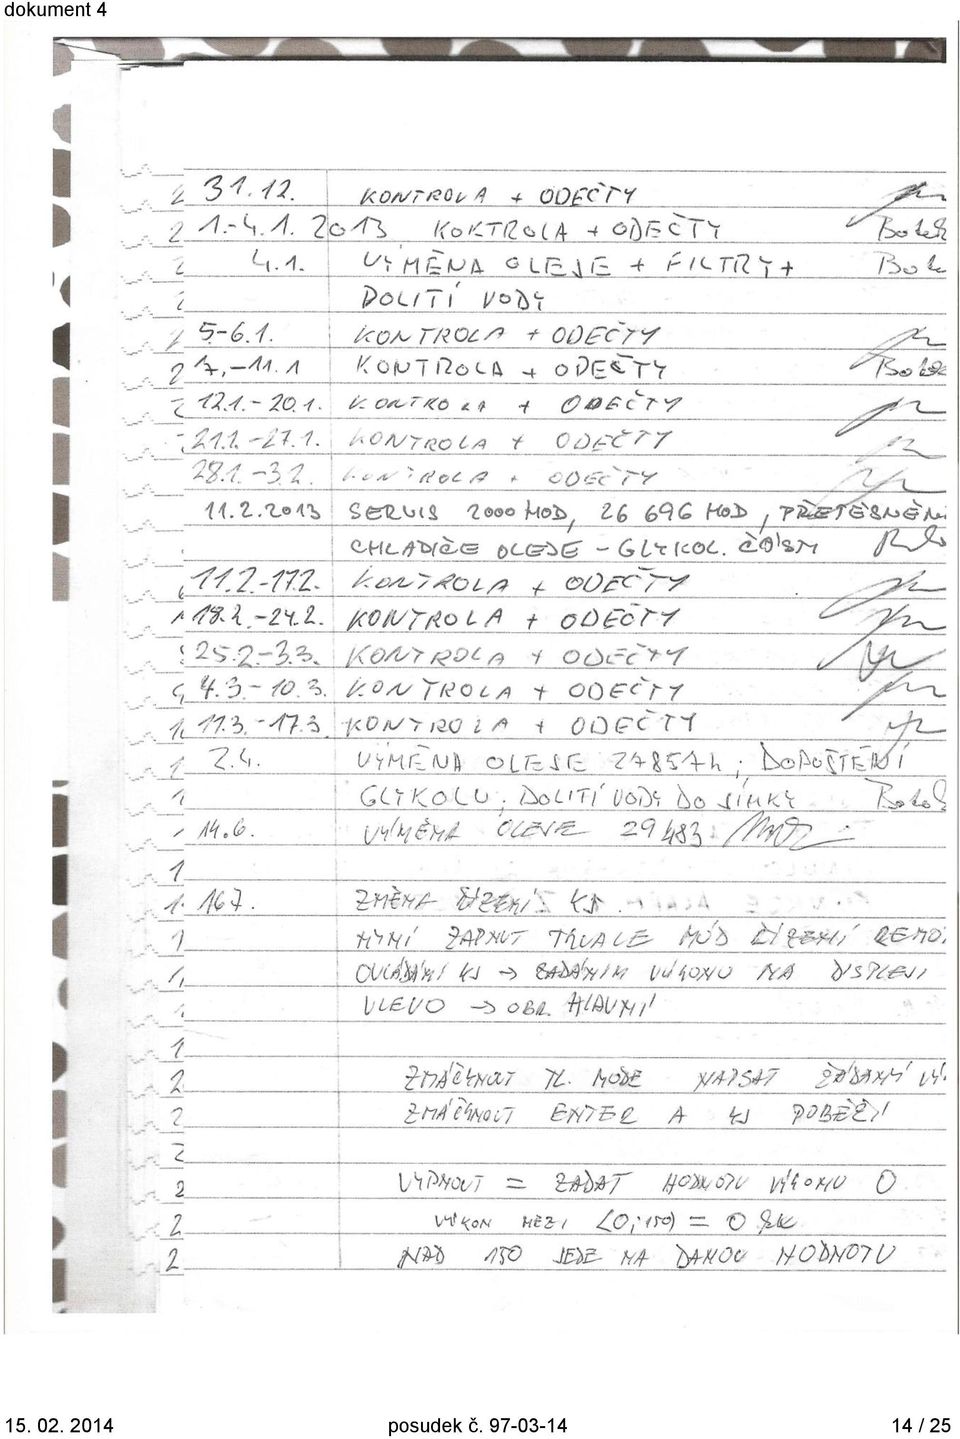 dokument 4
31.12. KONTROLA + ODEČTY
1.-4.1. 2013 KOKTROLA + ODEČTY
4.1. VÝMĚNA OLEJE + FILTRY +
DOLITÍ VODY
5-6.1. KONTROLA + ODEČTY
7.-11.1 KONTROLA + ODEČTY
12.1.-20.1. KONTROLA + ODEČTY
21.1.-27.1. KONTROLA + ODEČTY
28.1.-3.2. KONTROLA + ODEČTY
11.2.2013 SERVIS 2000 MOD, 26 696 MOD, PŘETĚSNĚNÍ
CHLADIČE OLEJE - GLYKOL.
11.2.-17.2. KONTROLA + ODEČTY
18.2.-24.2. KONTROLA + ODEČTY
25.2.-3.3. KONTROLA + ODEČTY
4.3.-10.3. KONTROLA + ODEČTY
11.3.-17.3. KONTROLA + ODEČTY
2.4. VÝMĚNA OLEJE 27857h; DOPUŠTĚNÍ
GLYKOLU; DOLITÍ VODY DO JÍMKY
14.6. VÝMĚNA OLEJE 29483
16.7. ZMĚNA ŘÍZENÍ KJ.
NYNÍ ZAPNUT TRVALE MÓD ŘÍZENÍ REMO.
OVLÁDÁNÍ KJ → ZADÁNÍM VÝKONU NA DISPLEJI
VLEVO → OBR. HLAVNÍ
ZMÁČKNOUT TL. MODE NAPSAT ŽÁDANÝ VÝ.
ZMÁČKNOUT ENTER A KJ POBĚŽÍ
VYPNOUT = ZADAT HODNOTU VÝKONU 0
VÝKON MEZI <0;150) = 0
NAD 150 JEDE NA DANOU HODNOTU
15. 02. 2014 posudek č. 97-03-14 14 / 25